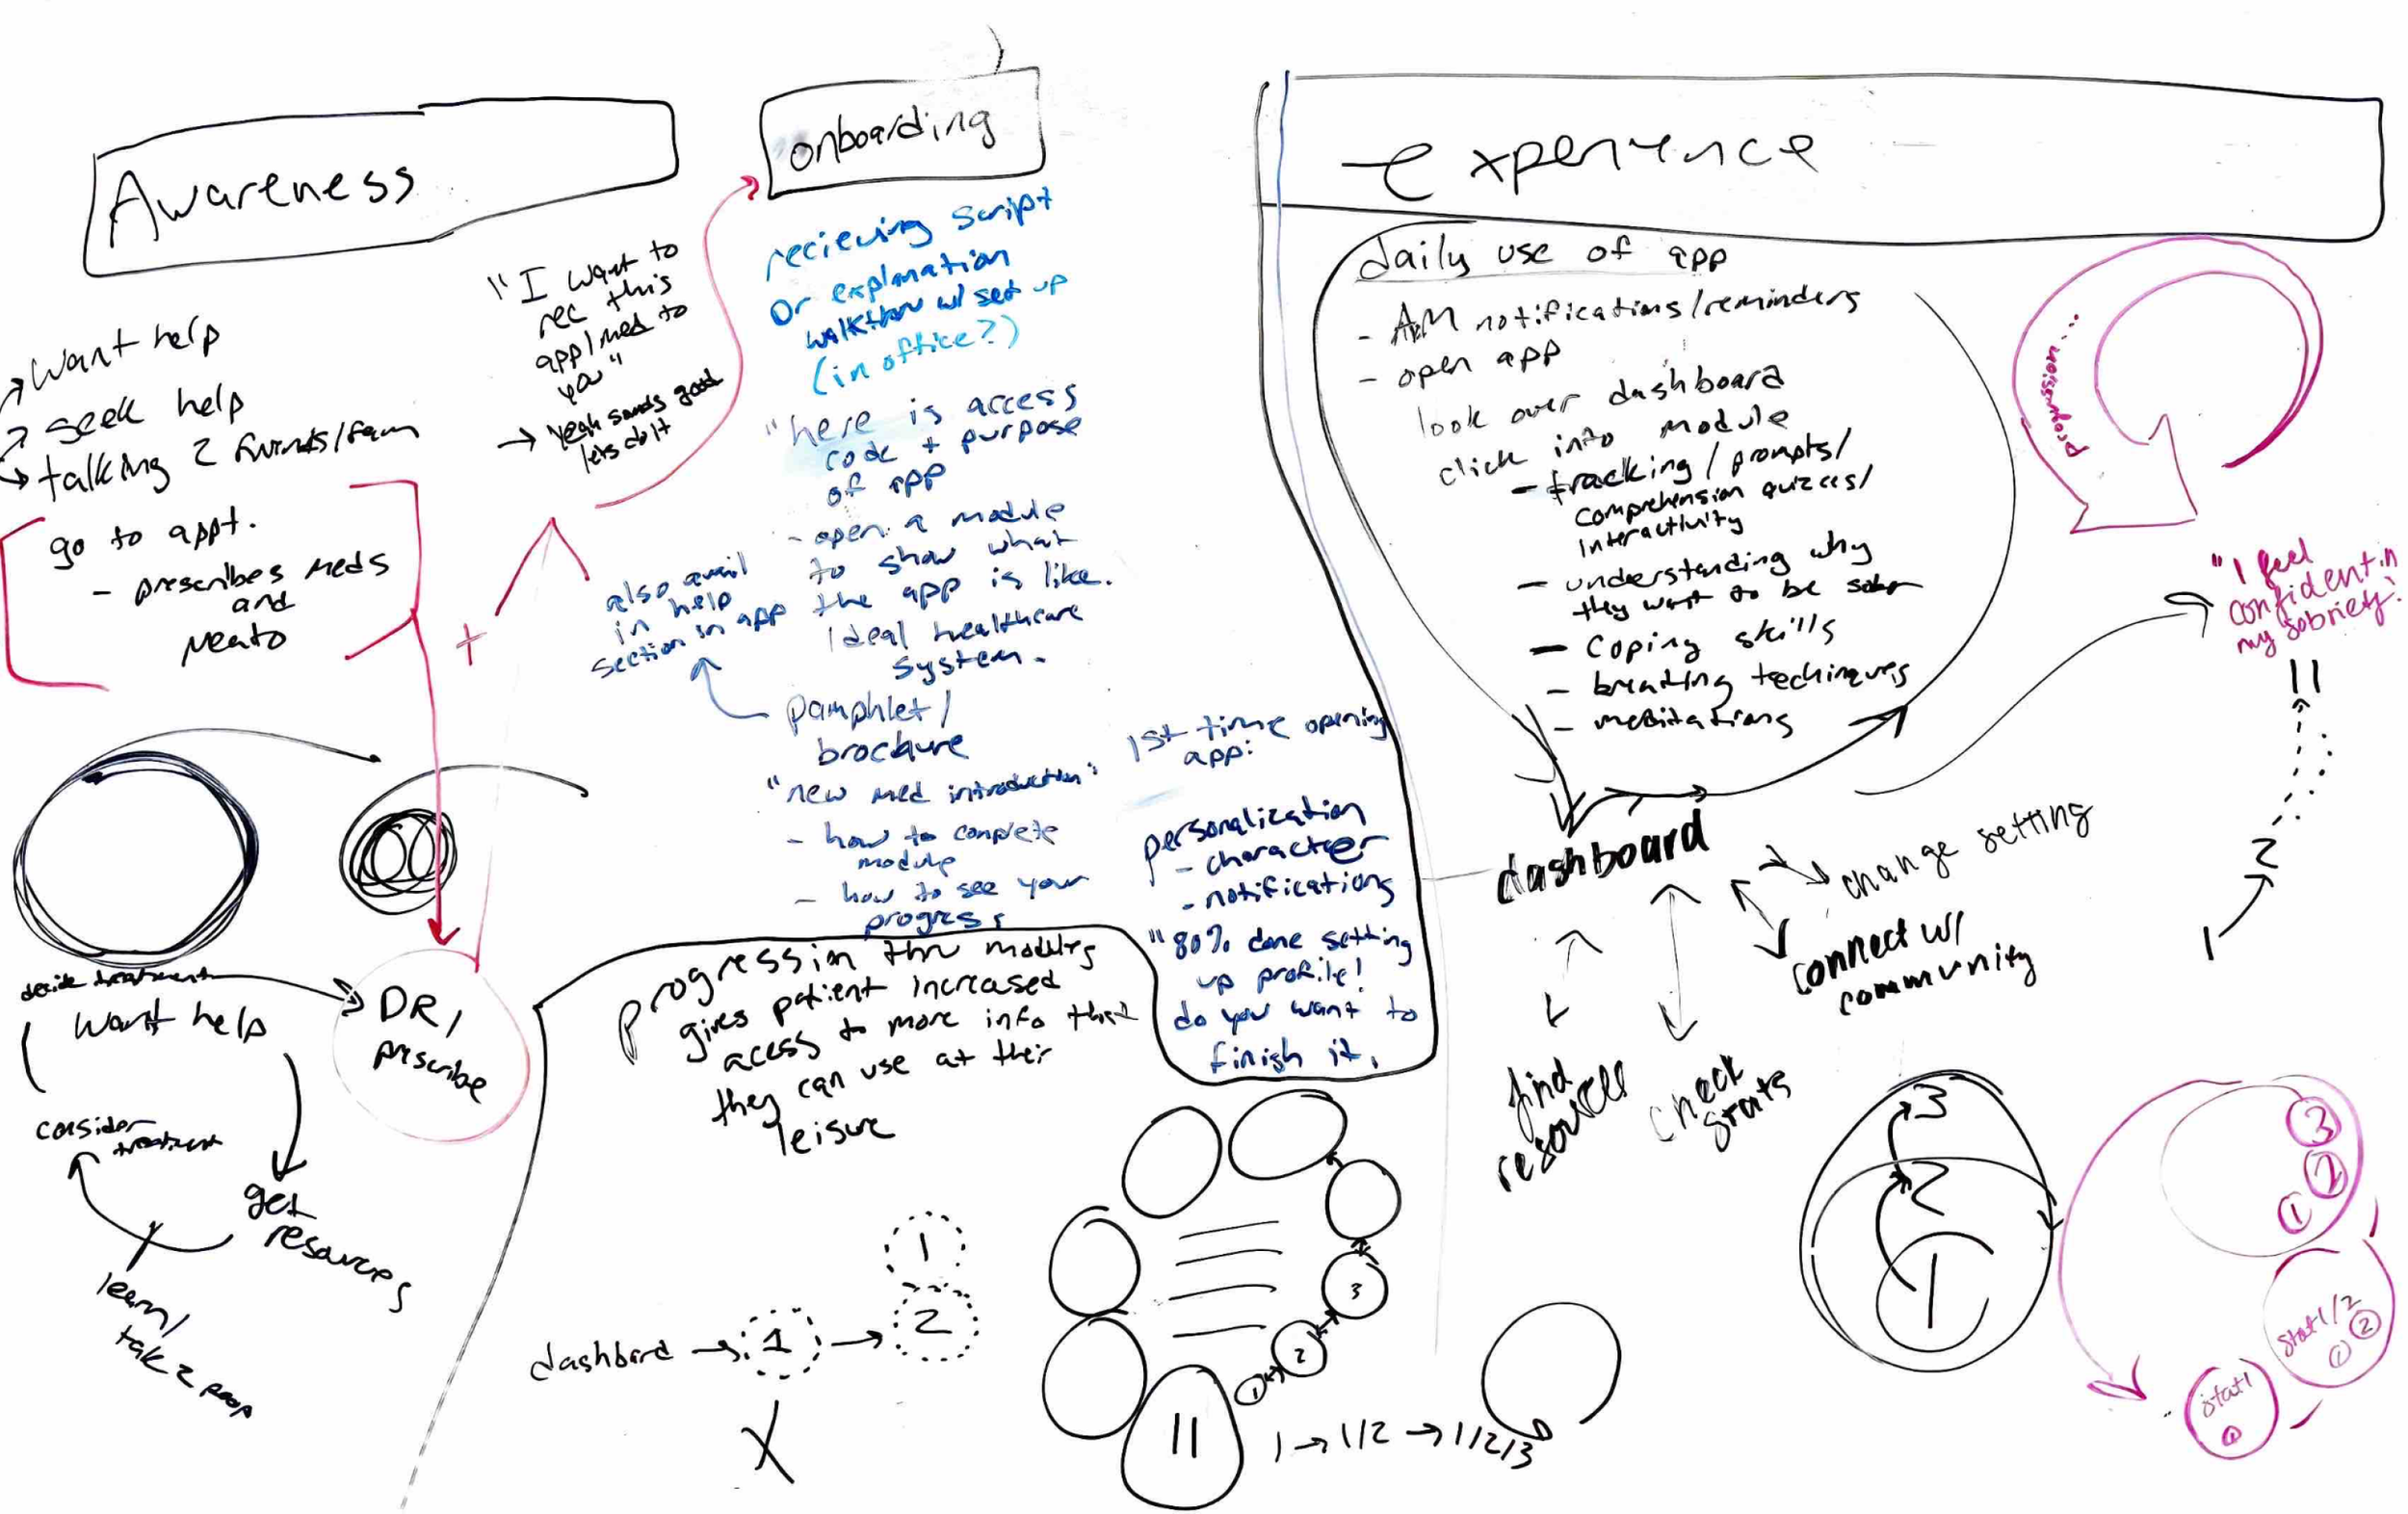 Awareness
want help
seek help
talking 2 friends/fam
go to appt.
- prescribes meds
and
Meato
"I want to
rec this
app/med to
you"
→ yeah sounds good
lets do it
decide treatment
want help
consider
treatment
get
resources
learn/
talk 2 peop
DR/
prescribe
onboarding
recieving script
or explanation
walkthru w/ set up
(in office?)
"here is access
code + purpose
of app
- open a module
to show what
the app is like.
Ideal healthcare
system.
also avail
in help
section in app
pamphlet/
brochure
"new med introduction"
- how to complete
module
- how to see your
progress
1st time opening
app:
personalization
- character
- notifications
"80% done setting
up profile!
do you want to
finish it.
progression thru modules
gives patient increased
acess to more info that
they can use at their
leisure
dashbord → 1 → 2
1
X
11
1
2
3
1 → 1/2 → 1/2/3
experience
daily use of app
- AM notifications/reminders
- open app
look over dashboard
click into module
- tracking/prompts/
comprehension quizzes/
interactivity
- understanding why
they want to be sober
- coping skills
- breathing techinques
- meditations
dashboard
change setting
connect w/
community
check
stats
find
resources
progression...
"I feel
confident in
my sobriety."
11
2
1
3
2
1
3
2
1
stat 1/2
1 2
stat 1
1